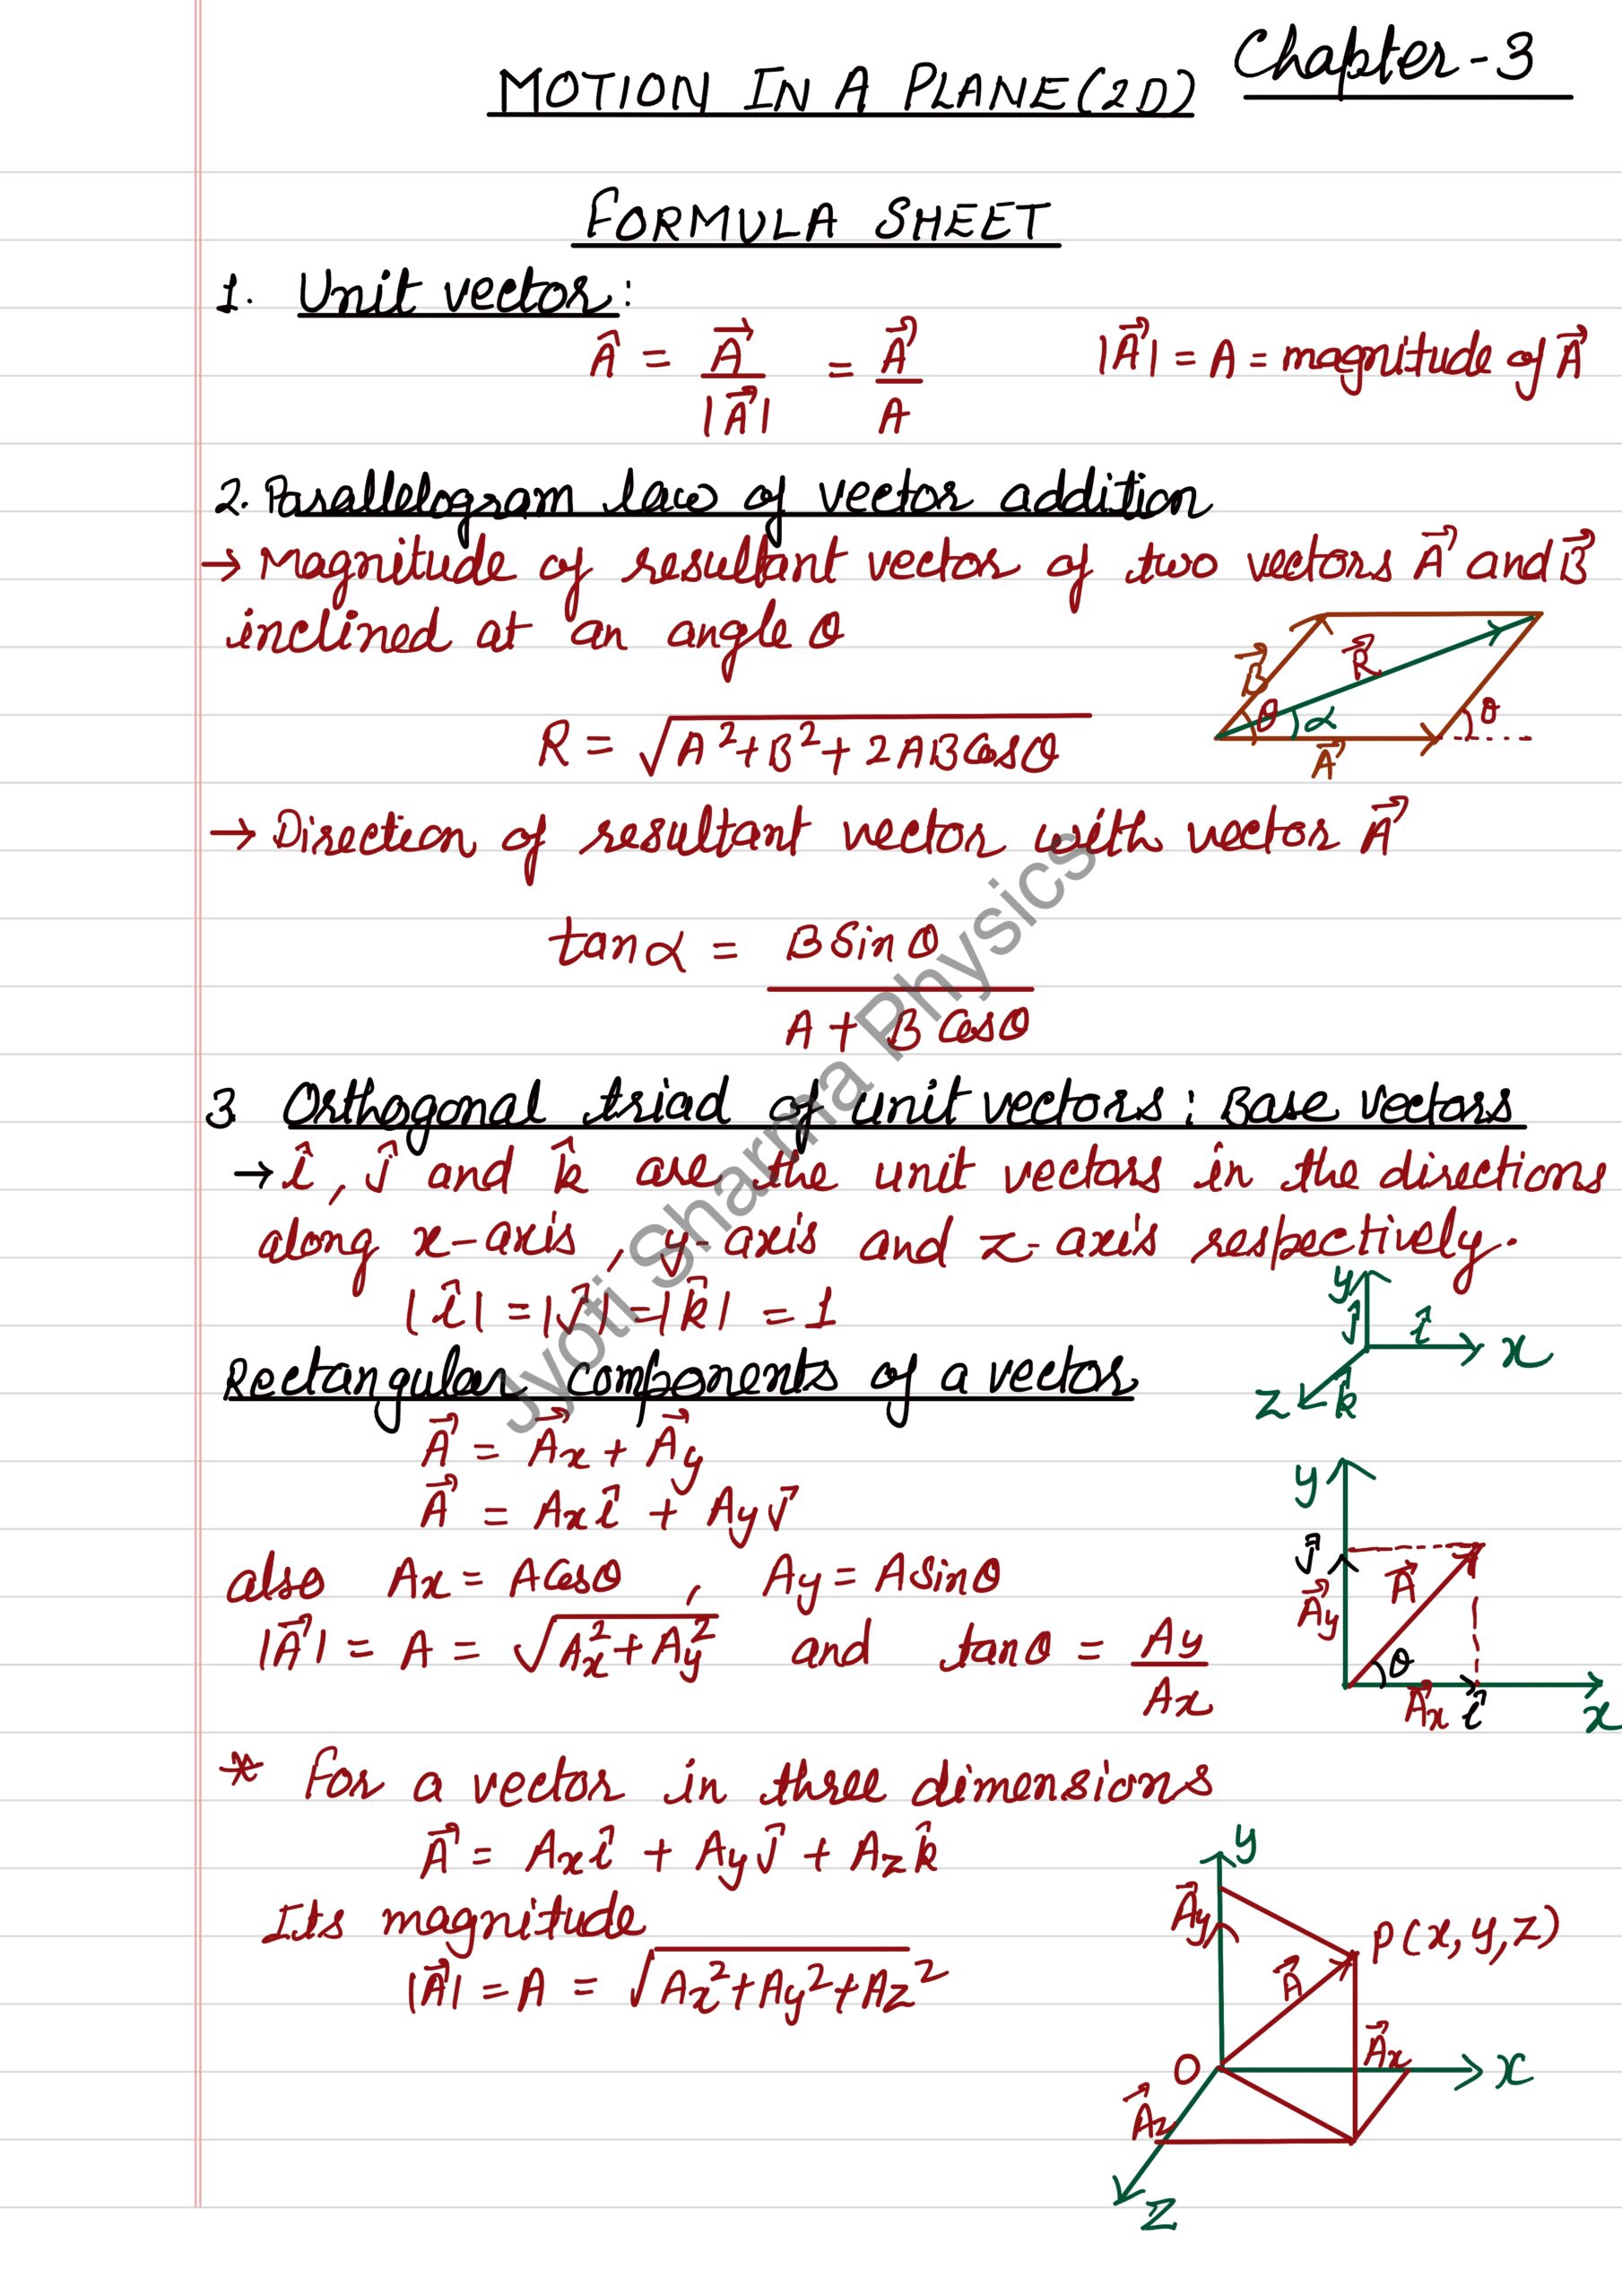 Chapter-3
MOTION IN A PLANE (2D)
FORMULA SHEET
1. Unit vector:
Â = A⃗/|A⃗| = A⃗/A    |A⃗| = A = magnitude of A⃗
2. Parallelogram law of vector addition
→ Magnitude of resultant vector of two vectors A⃗ and B⃗
inclined at an angle θ
B⃗ R⃗ θ α θ A⃗
R = √(A²+B²+2ABCosθ)
→ Direction of resultant vector with vector A⃗
tanα = BSinθ/(A + BCosθ)
3. Orthogonal triad of unit vectors: Base vectors
→ î, ĵ and k̂ are the unit vectors in the directions
along x-axis, y-axis and z-axis respectively.
|î| = |ĵ| = |k̂| = 1
y ĵ î x z k̂
Rectangular components of a vector
A⃗ = A⃗x + A⃗y
A⃗ = Axî + Ayĵ
also Ax = ACosθ, Ay = ASinθ
|A⃗| = A = √(Ax²+Ay²) and tanθ = Ay/Ax
y ĵ A⃗y A⃗ θ A⃗x î x
* For a vector in three dimensions
A⃗ = Axî + Ayĵ + Azk̂
Its magnitude
|A⃗| = A = √(Ax²+Ay²+Az²)
y A⃗y P(x,y,z) A⃗ A⃗x O x A⃗z z
Jyoti Sharma Physics